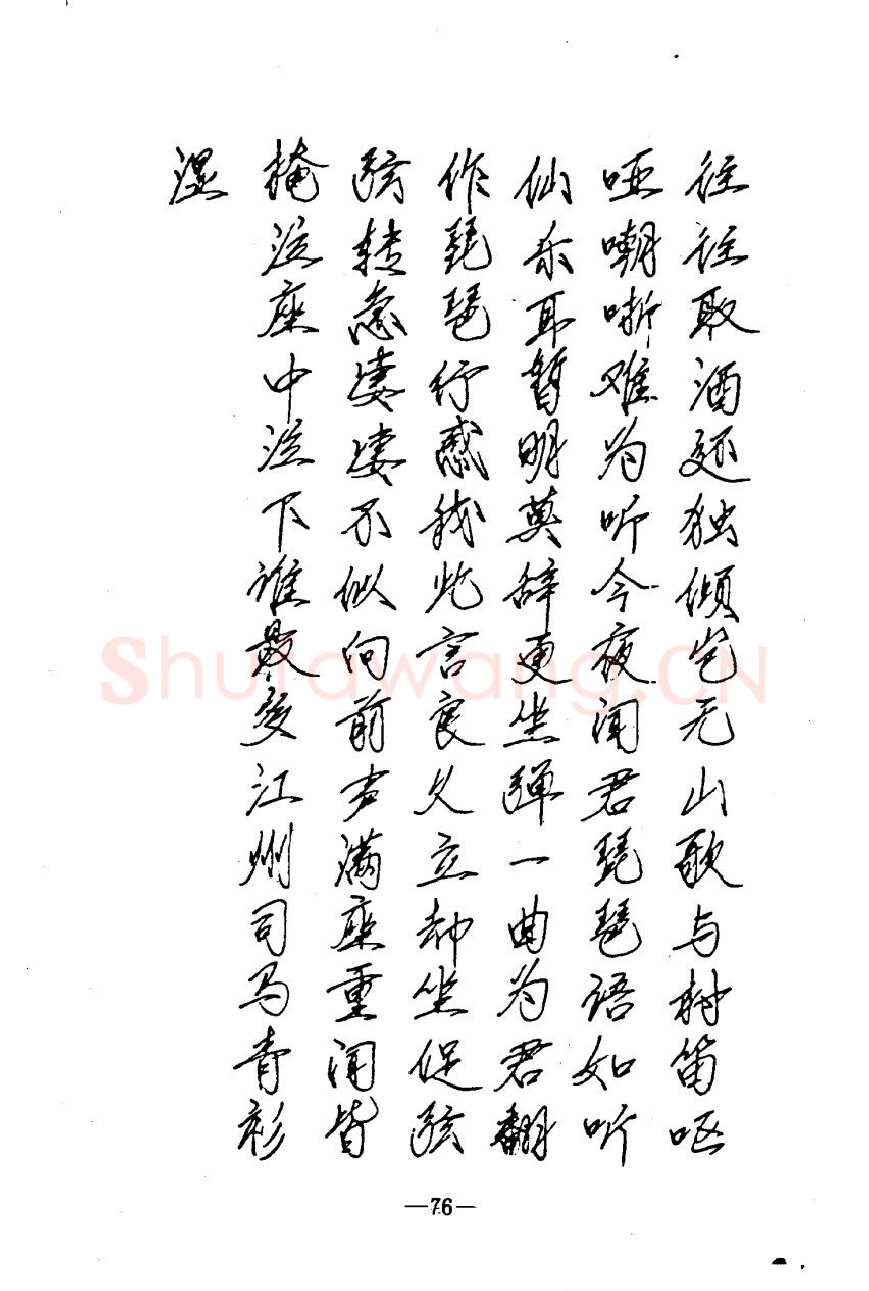 往往取酒还独倾岂无山歌与村笛呕
哑嘲哳难为听今夜闻君琵琶语如听
仙乐耳暂明莫辞更坐弹一曲为君翻
作琵琶行感我此言良久立却坐促弦
弦转急凄凄不似向前声满座重闻皆
掩泣座中泣下谁最多江州司马青衫
湿
—76—
Shufawang.CN